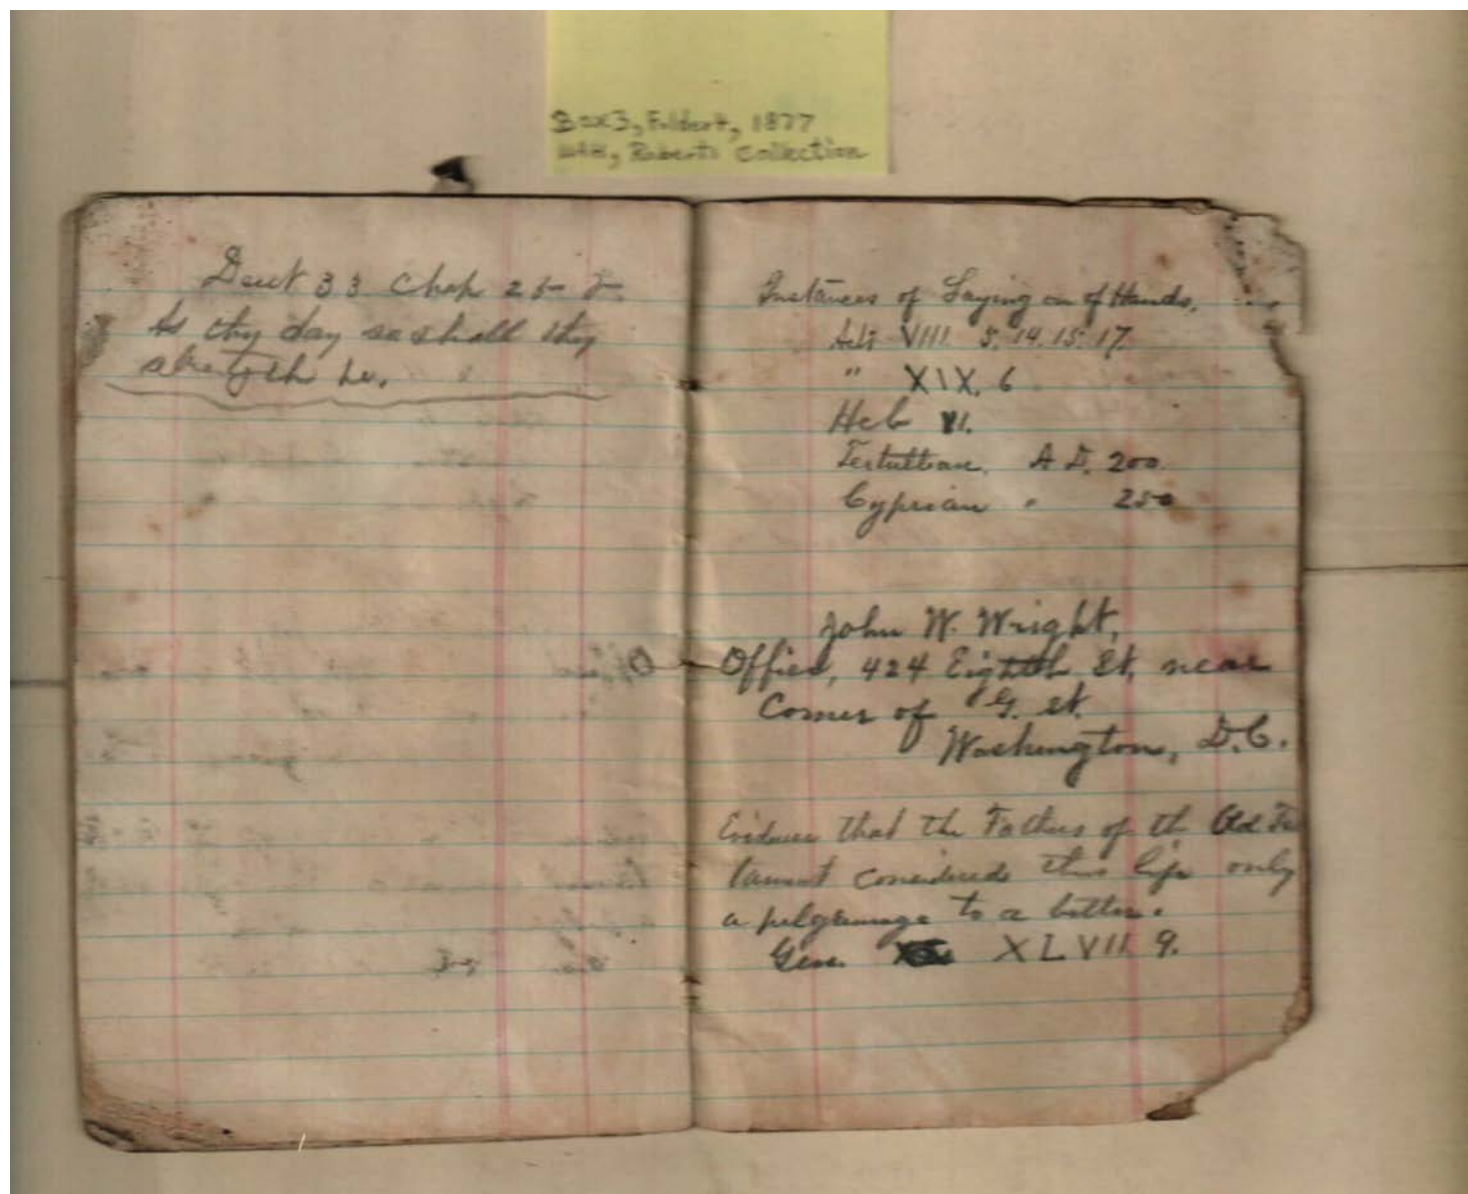 Box 3, Folder 4, 1877
WHH, Roberts Collection
Deut 33 Chap 25
As thy day so shall thy
strength be.
Instances of Laying on of Hands.
Acts VIII 5. 14. 15. 17.
" XIX. 6
Heb VI.
Tertullian. A D. 200.
Cyprian " 250
John W. Wright,
Office, 424 Eighth St, near
Corner of G. st.
Washington, D.C.
Evidence that the Fathers of th Old Tes
tament considered this life only
a pilgrimage to a better.
Gen. XLVII 9.